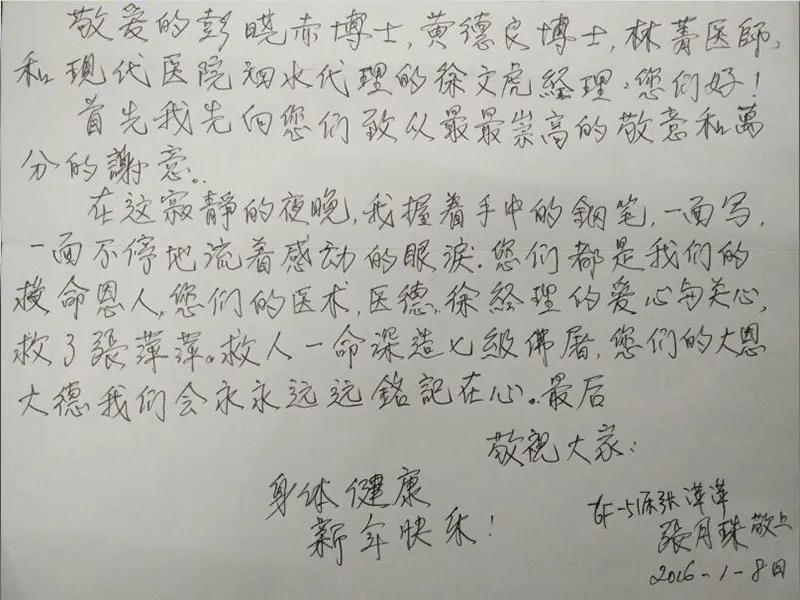 敬爱的彭晓赤博士,黄德良博士,林菁医師,
和現代医院泗水代理的徐文虎経理:您们好!
首先我先向您们致以最最崇高的敬意和萬
分的謝意。
在这寂靜的夜晚,我握着手中的鋼笔,一面写,
一面不停地流着感动的眼淚.您们都是我们的
救命恩人,您们的医术,医德,徐経理的爱心与关心,
救了張萍萍。救人一命深造七級佛屠,您们的大恩
大德我们会永永远远銘記在心。最后
敬祝大家:
身体健康
新年快乐!
6F-51床张萍萍
張月珠敬上
2016-1-8日